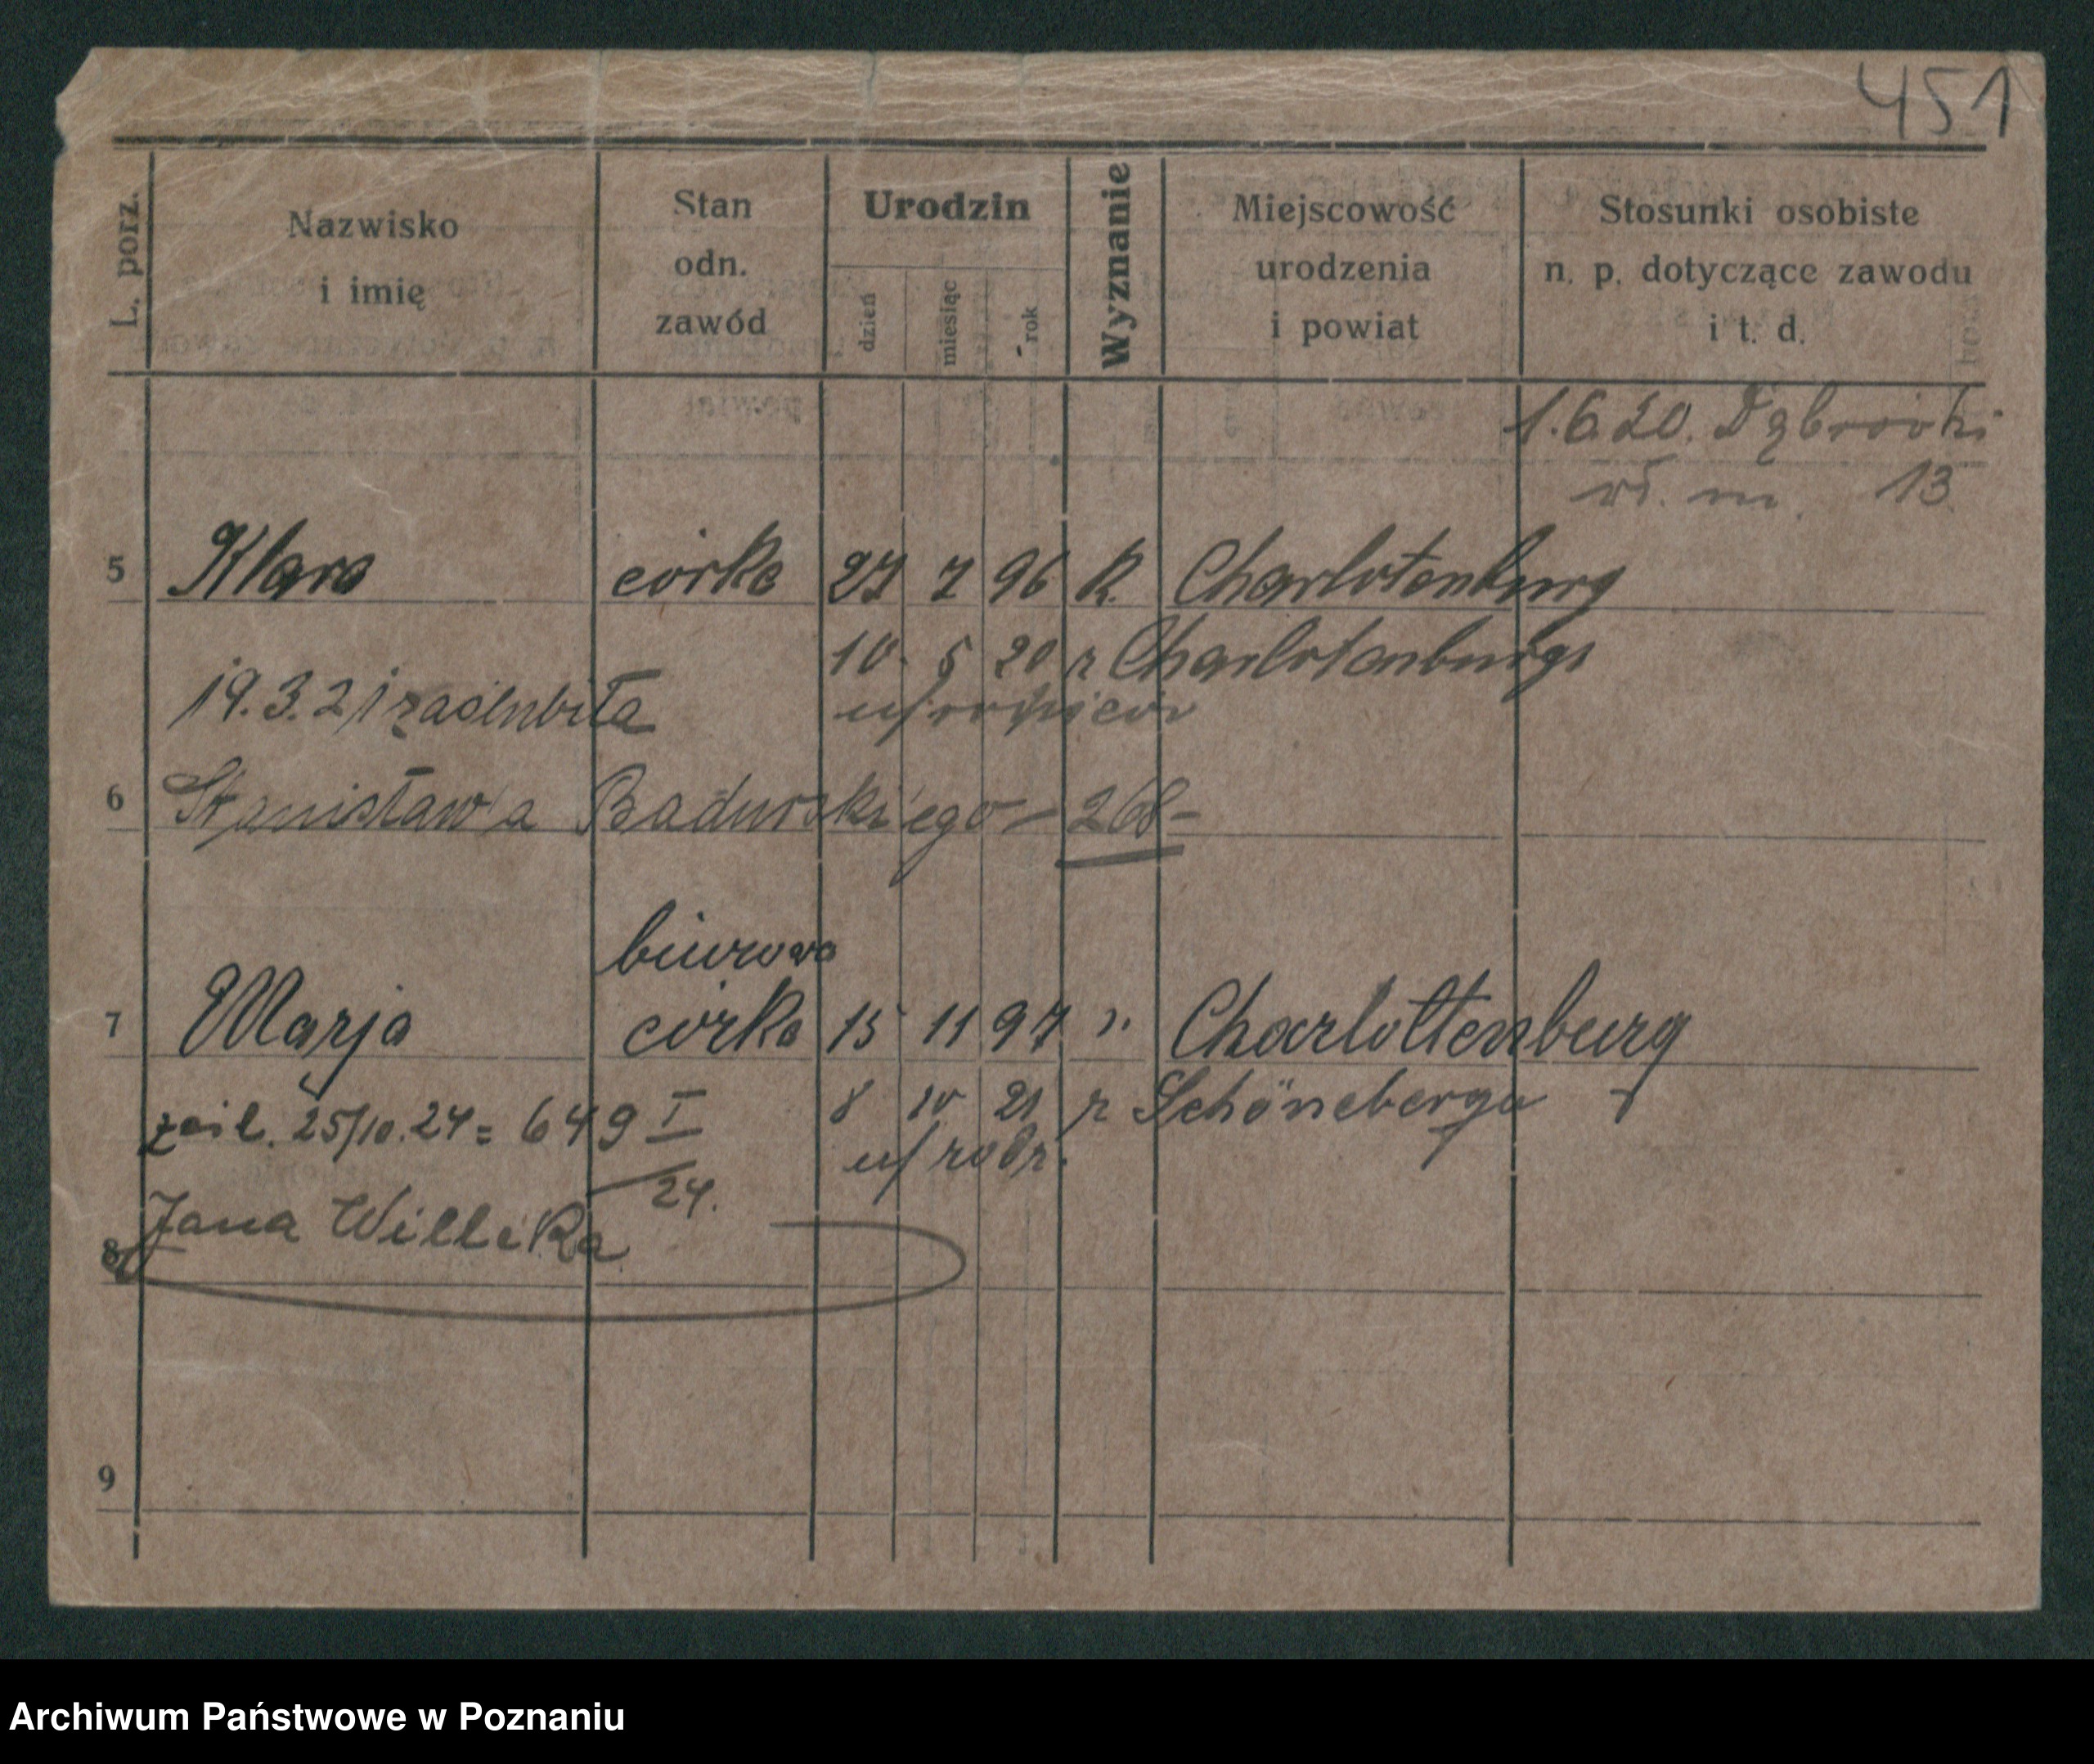 451
L. porz.
Nazwisko
i imię
Stan
odn.
zawód
Urodzin
dzień
miesiąc
rok
Wyznanie
Miejscowość
urodzenia
i powiat
Stosunki osobiste
n. p. dotyczące zawodu
i t. d.
1.6.20. Dąbrówki
m. 13
5 Klara córka 27 7 96 R. Charlotenburg
10 5 20 z Charlotenburga
19.3.21 zaślubiła
6 Stanisława Badurskiego - 268 -
biurowa
7 Marja córka 15 11 97 ". Charlottenburg
8 10 21 z Schöneberga
zaśl. 25/10.24 = 649 I
24.
u/rodz.
Jana Willeka
8
9
Archiwum Państwowe w Poznaniu